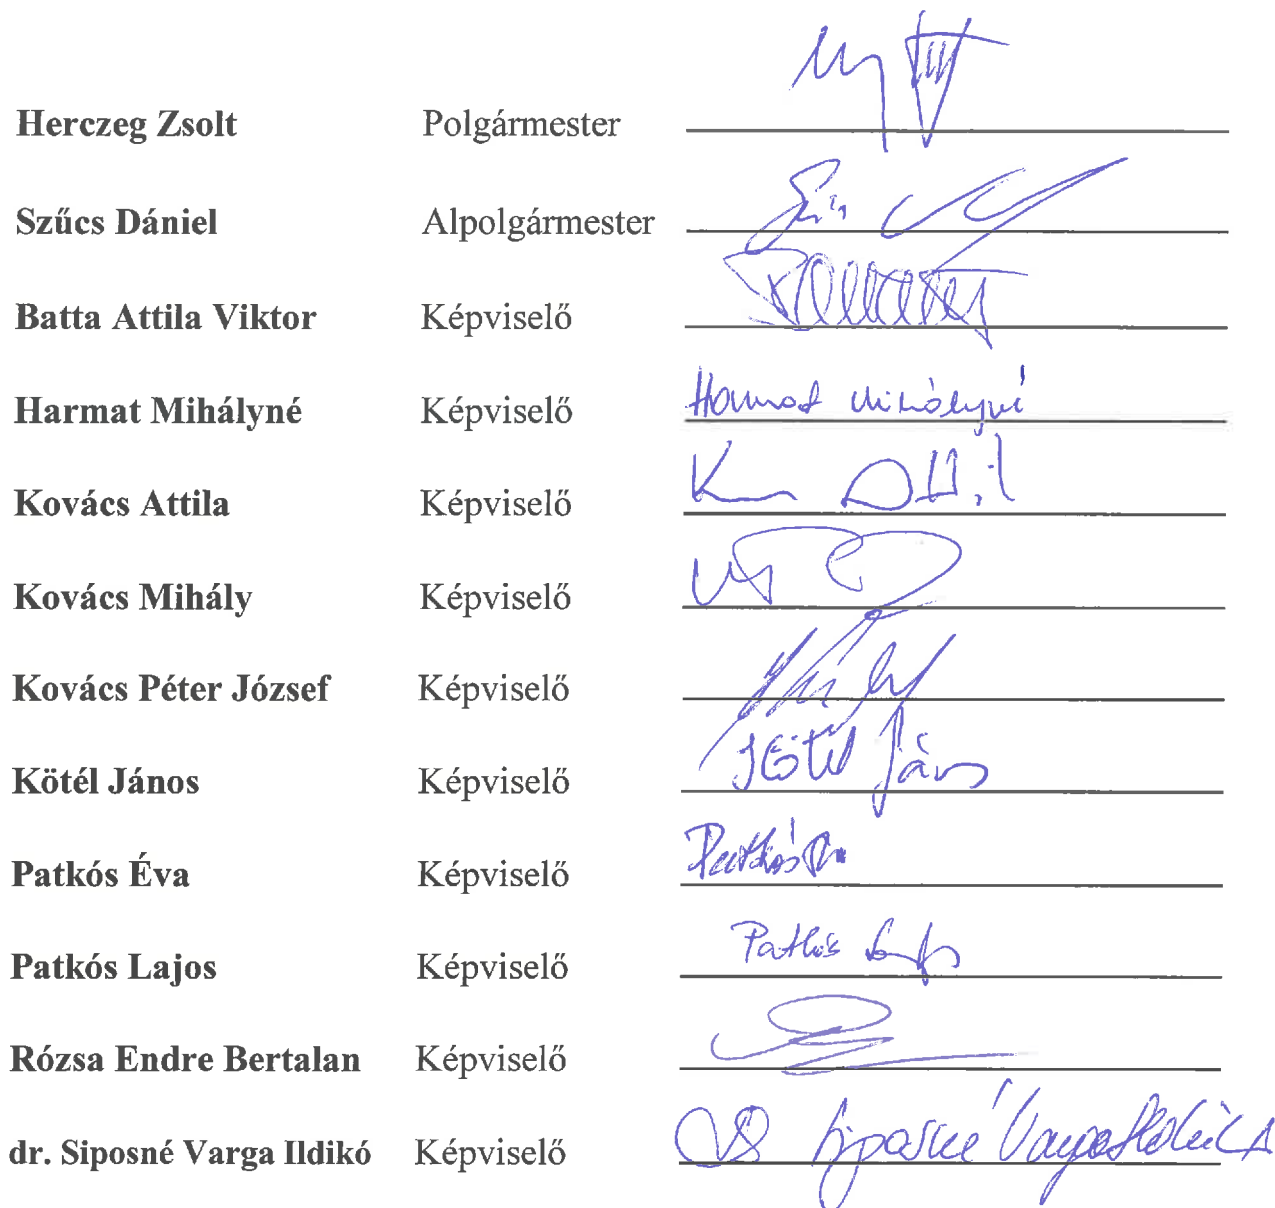 Herczeg Zsolt Polgármester
Szűcs Dániel Alpolgármester
Batta Attila Viktor Képviselő
Harmat Mihályné Képviselő Harmat Mihályné
Kovács Attila Képviselő
Kovács Mihály Képviselő
Kovács Péter József Képviselő
Kötél János Képviselő Kötél János
Patkós Éva Képviselő Patkós
Patkós Lajos Képviselő Patkós
Rózsa Endre Bertalan Képviselő
dr. Siposné Varga Ildikó Képviselő Siposné Varga Ildikó